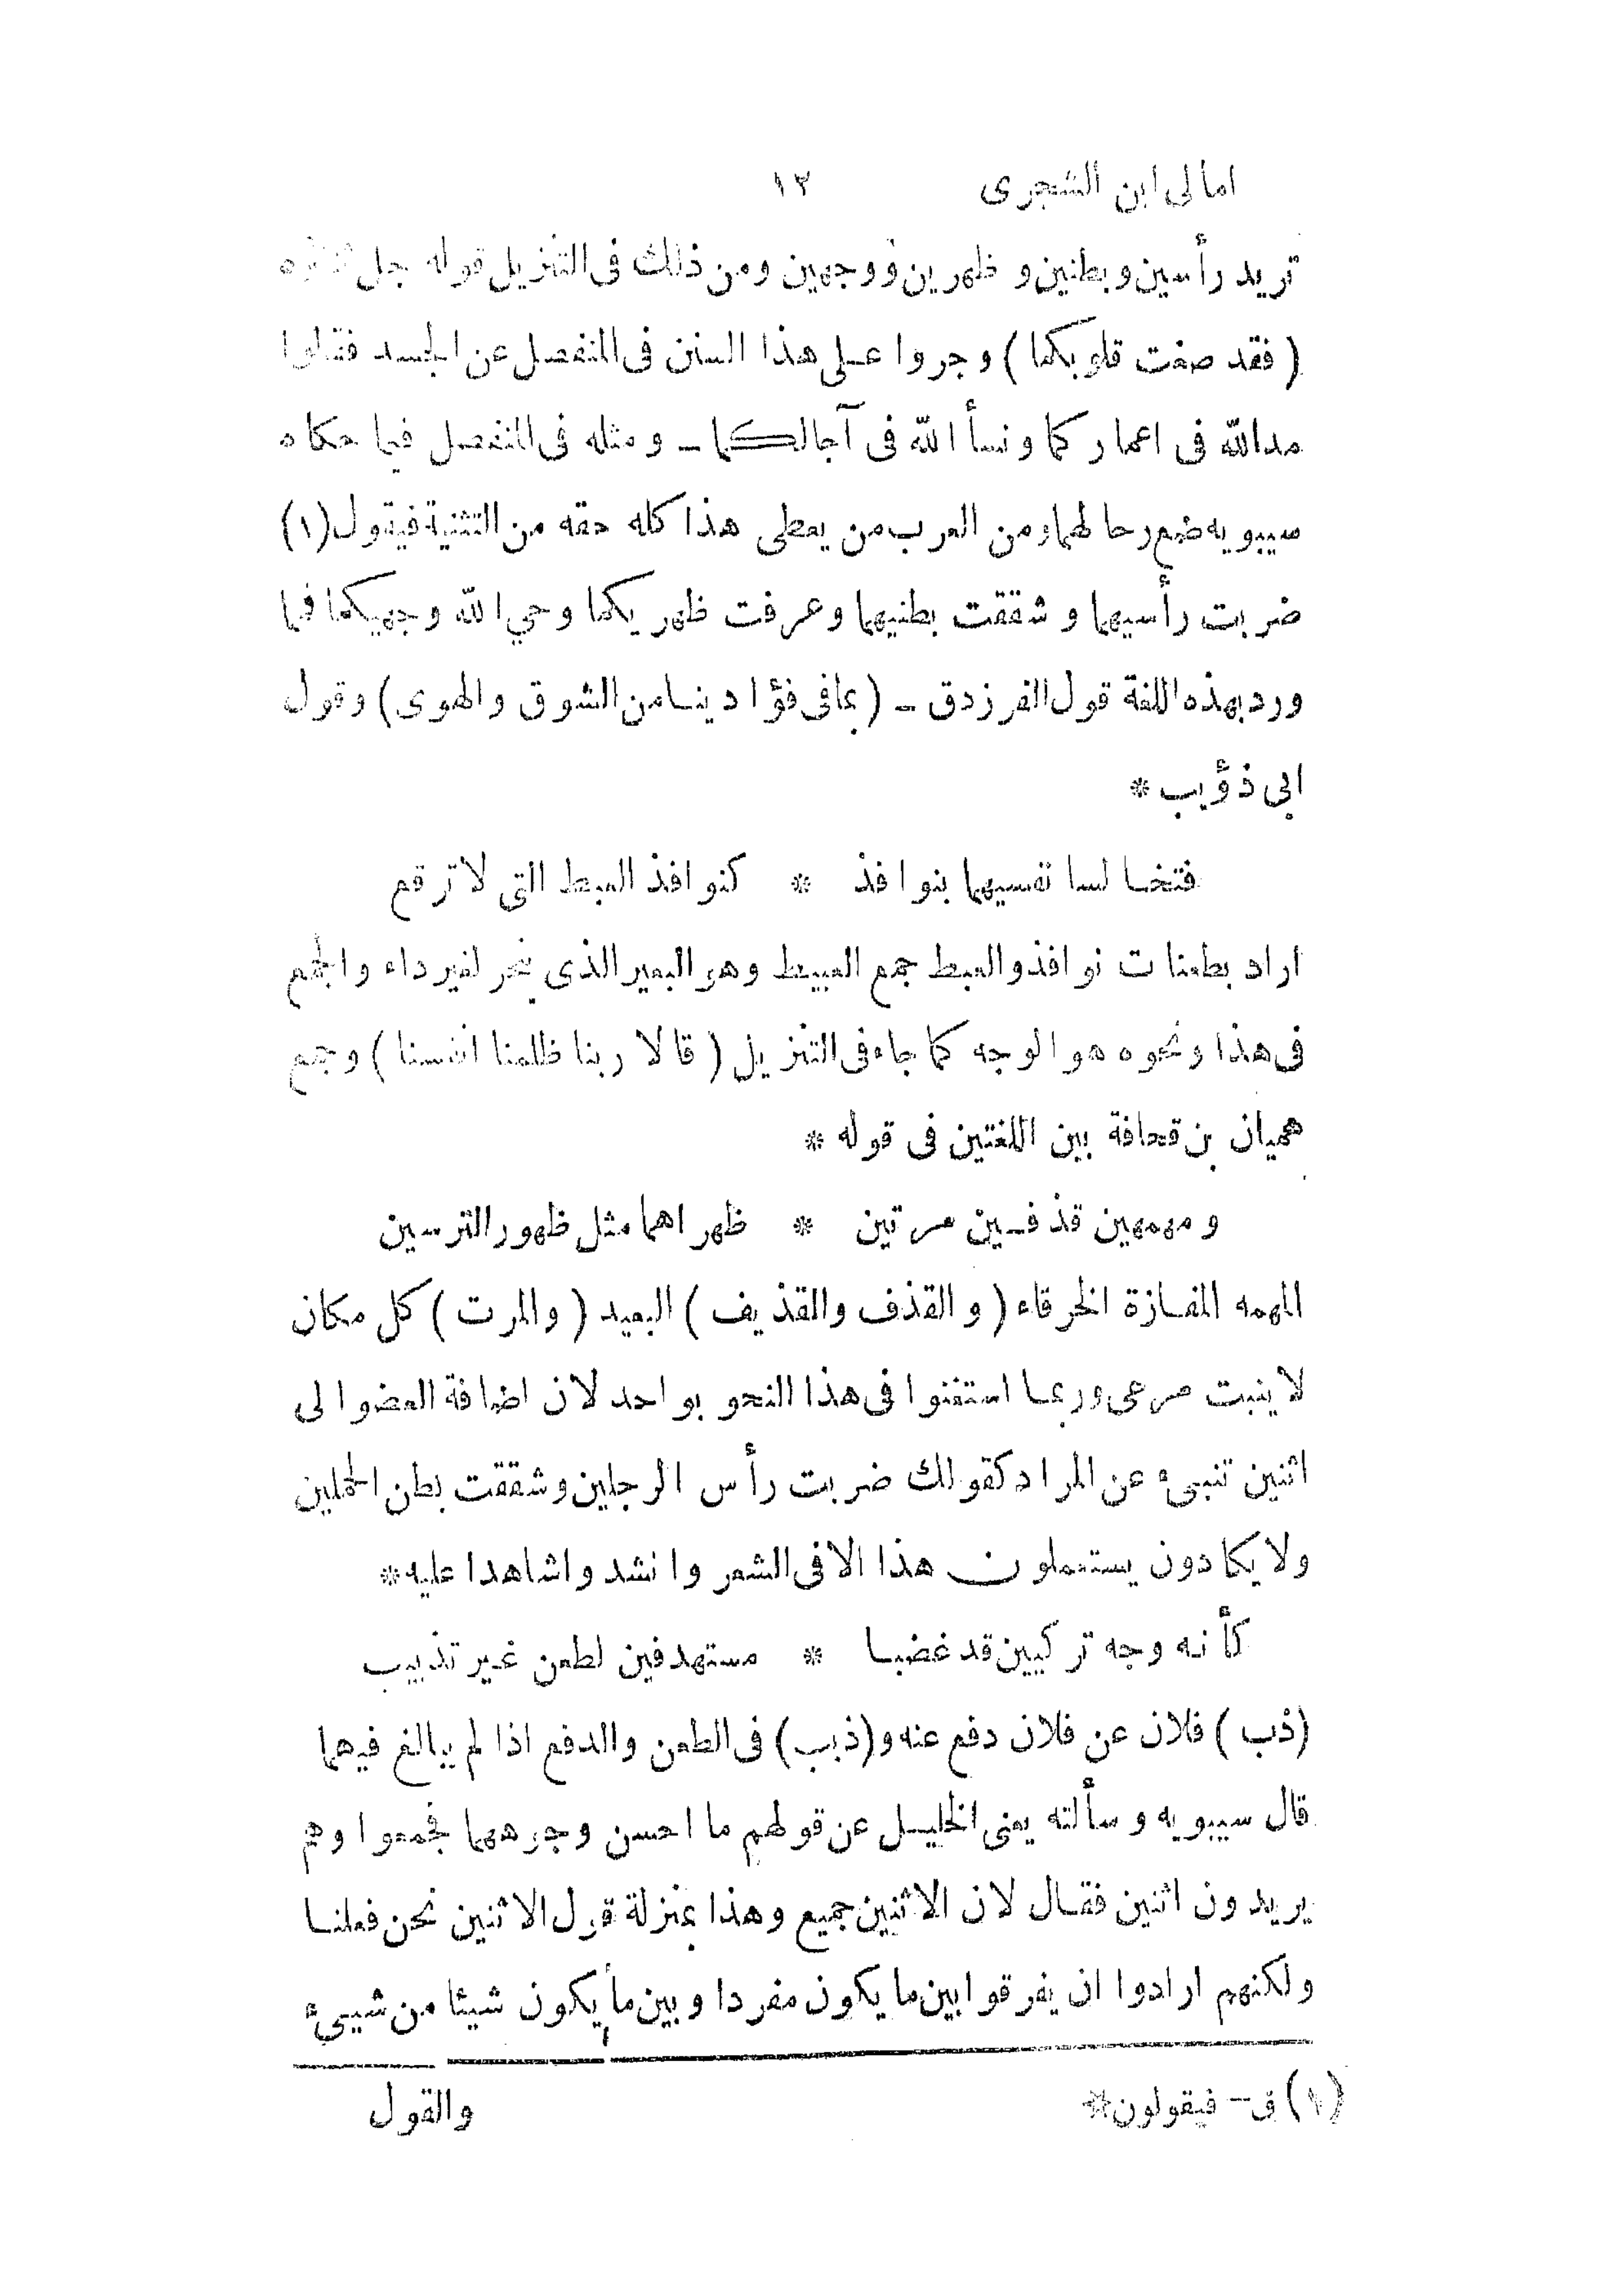 امالى ابن الشجرى ١٢
تريد رأسين وبطنين و ظهرين ووجهين ومن ذلك فى التنزيل قوله جل
( فقد صغت قلوبكما ) وجروا على هذا السنن فى المنفصل عن الجسد فقالوا
مدالله فى اعماركما ونسأ الله فى آجالكما ــ ومثله فى المنفصل فيما حكاه
سيبويه ضع رحالهما ومن العرب من يعطى هذا كله حقه من التثنية فيقول (١)
ضربت رأسيهما وشققت بطنيهما وعرفت ظهريكما وحي الله وجهيكما فمما
ورد بهذه اللغة قول الفرزدق ــ ( بما فى فؤادينا من الشوق والهوى ) وقول
ابى ذؤيب *
فتخالسا نفسيهما بنوافذ * كنوافذ العبط التى لا ترقع
اراد بطعنات نوافذ والعبط جمع العبيط وهو البعير الذى ينحر لغير داء والجمع
فى هذا ونحوه هو الوجه كما جاء فى التنزيل ( قالا ربنا ظلمنا انفسنا ) وجمع
هميان بن قحافة بين اللغتين فى قوله *
ومهمهين قذفين مرتين * ظهراهما مثل ظهور الترسين
المهمه المفازة الخرقاء ( والقذف والقذيف ) البعيد ( والمرت ) كل مكان
لا ينبت مرعى وربما استغنوا فى هذا النحو بواحد لان اضافة العضو الى
اثنين تنبىء عن المراد كقولك ضربت رأس الرجلين وشققت بطن الحملين
ولا يكادون يستعملون هذا الا فى الشعر وانشدوا شاهدا عليه *
كأنه وجه تركيين قد غضبا * مستهدفين لطعن غير تذبيب
(ذب ) فلان عن فلان دفع عنه و(ذبب) فى الطعن والدفع اذا لم يبالغ فيهما
قال سيبويه وسألته يعنى الخليل عن قولهم ما احسن وجوههما فجمعوا وهم
يريدون اثنين فقال لان الاثنين جميع وهذا بمنزلة قول الاثنين نحن فعلنا
ولكنهم ارادوا ان يفرقوا بين ما يكون مفردا وبين ما يكون شيئا من شيىء
(١) ق – فيقولون *
والقول